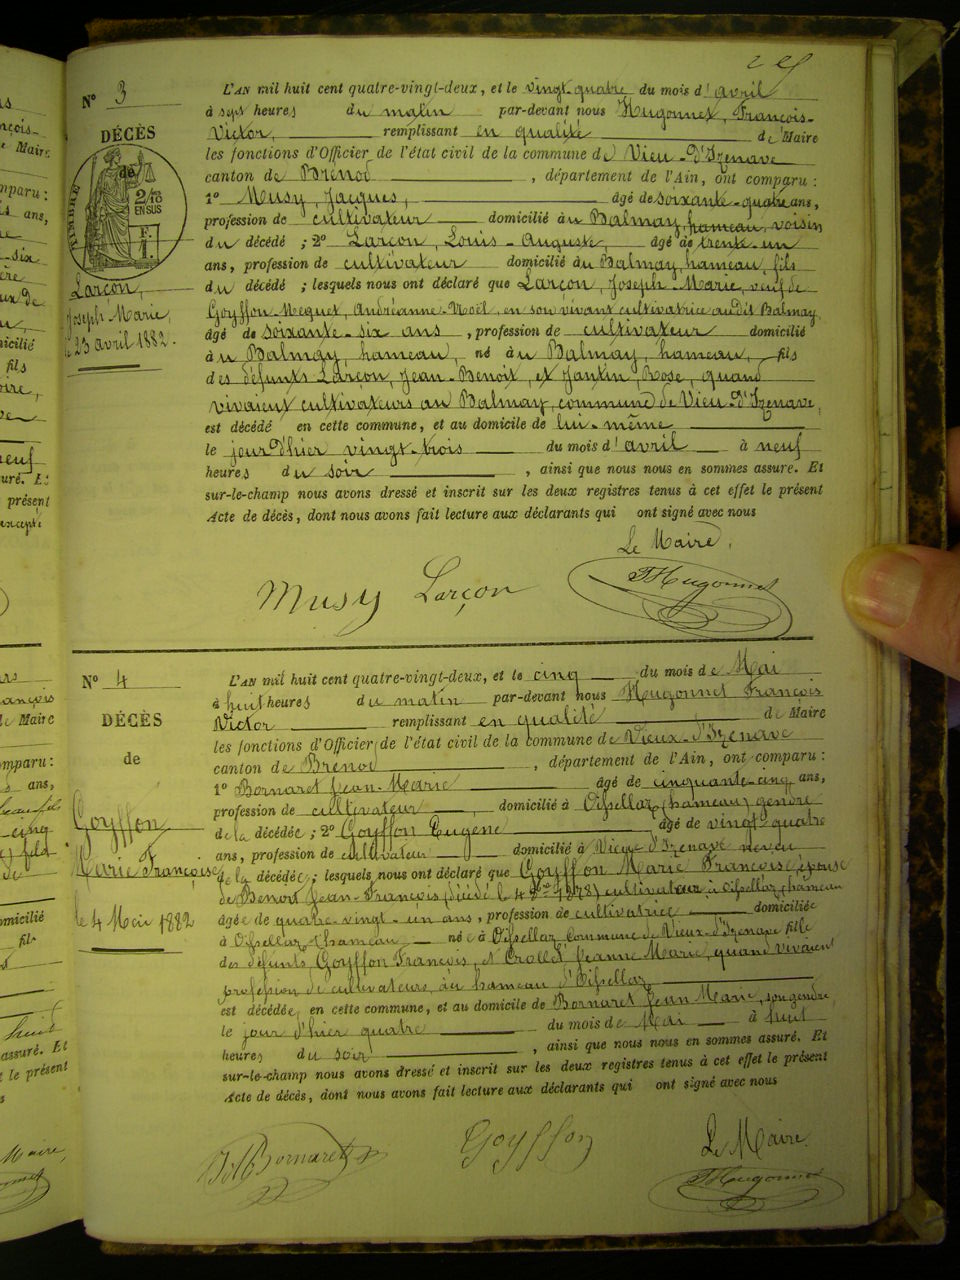 Nº 3
DÉCÈS
de
TIMBRE
2/10
EN SUS
F.
1.
Larçon,
Joseph-Marie,
le 23 avril 1882.
L'AN mil huit cent quatre-vingt-deux, et le vingt-quatre du mois d'avril
à sept heures du matin par-devant nous Hugonnet, François-
Victor, remplissant en qualité de Maire
les fonctions d'Officier de l'état civil de la commune de Vieu-d'Izenave
canton de Brénod, département de l'Ain, ont comparu :
1º Musy, Jacques, âgé de soixante-quatre ans,
profession de cultivateur domicilié au Balmay, hameau, voisin
du décédé ; 2º Larçon, Louis-Auguste, âgé de trente-un
ans, profession de cultivateur domicilié au Balmay, hameau, fils
du décédé ; lesquels nous ont déclaré que Larçon, Joseph-Marie, veuf de
Goyffon-Meguet, Andréanne-Noël, en son vivant cultivatrice audit Balmay,
âgé de soixante-six ans, profession de cultivateur domicilié
à u Balmay, hameau, né au Balmay, hameau, fils
des défunts Larçon, Jean-Benoit, et Jantin, Rose, quand
vivaient cultivateurs au Balmay, commune de Vieu-d'Izenave,
est décédé en cette commune, et au domicile de lui-même
le jour d'hier vingt-trois du mois d'avril à neuf
heures du soir, ainsi que nous nous en sommes assuré. Et
sur-le-champ nous avons dressé et inscrit sur les deux registres tenus à cet effet le présent
Acte de décès, dont nous avons fait lecture aux déclarants qui ont signé avec nous
Le Maire,
Musy Larçon Hugonnet
Nº 4
DÉCÈS
de
Goyffon
Marie Françoise
le 4 Mai 1882
L'AN mil huit cent quatre-vingt-deux, et le cinq du mois de Mai
à huit heures du matin par-devant nous Hugonnet François
Victor remplissant en qualité de Maire
les fonctions d'Officier de l'état civil de la commune de Vieux-d'Izenave
canton de Brenod, département de l'Ain, ont comparu :
1º Bornaret Jean-Marie âgé de cinquante-cinq ans,
profession de cultivateur, domicilié à Oisellaz, hameau, gendre
de la décédée ; 2º Goyffon Eugène âgé de vingt-quatre
ans, profession de cultivateur domicilié à Vieux d'Izenave neveu
de la décédée ; lesquels nous ont déclaré que Goyffon Marie Françoise, épouse
de Benoit Jean-François (décédé le 4 1878) cultivateur à Oisellaz, hameau
âgée de quatre-vingt-un ans, profession de cultivatrice domiciliée
à Oisellaz, hameau née à Oisellaz, Commune de Vieux-d'Izenave fille
des défunts Goyffon François, et Crollet Jeanne Marie, quand vivaient
profession de cultivateurs, au hameau d'Oisellaz
est décédée, en cette commune, et au domicile de Bornaret Jean Marie, son gendre
le jour d'hier quatre du mois de Mai à huit
heures du soir, ainsi que nous nous en sommes assuré. Et
sur-le-champ nous avons dressé et inscrit sur les deux registres tenus à cet effet le présent
Acte de décès, dont nous avons fait lecture aux déclarants qui ont signé avec nous
Le Maire
Bornaret Goyffon Hugonnet